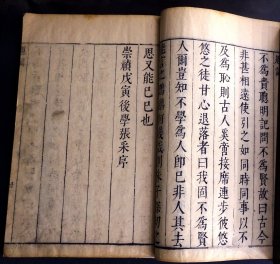 不爲賢聰明記問不爲賢故曰古今
非甚相遠使引之如同時同事以不
及爲恥則古人奚啻接席連步彼悠
悠之徒甘心退落者曰我固不爲賢
人爾豈知不學爲人卽已非人其去
思又能已已也
崇禎戊寅後學張采序